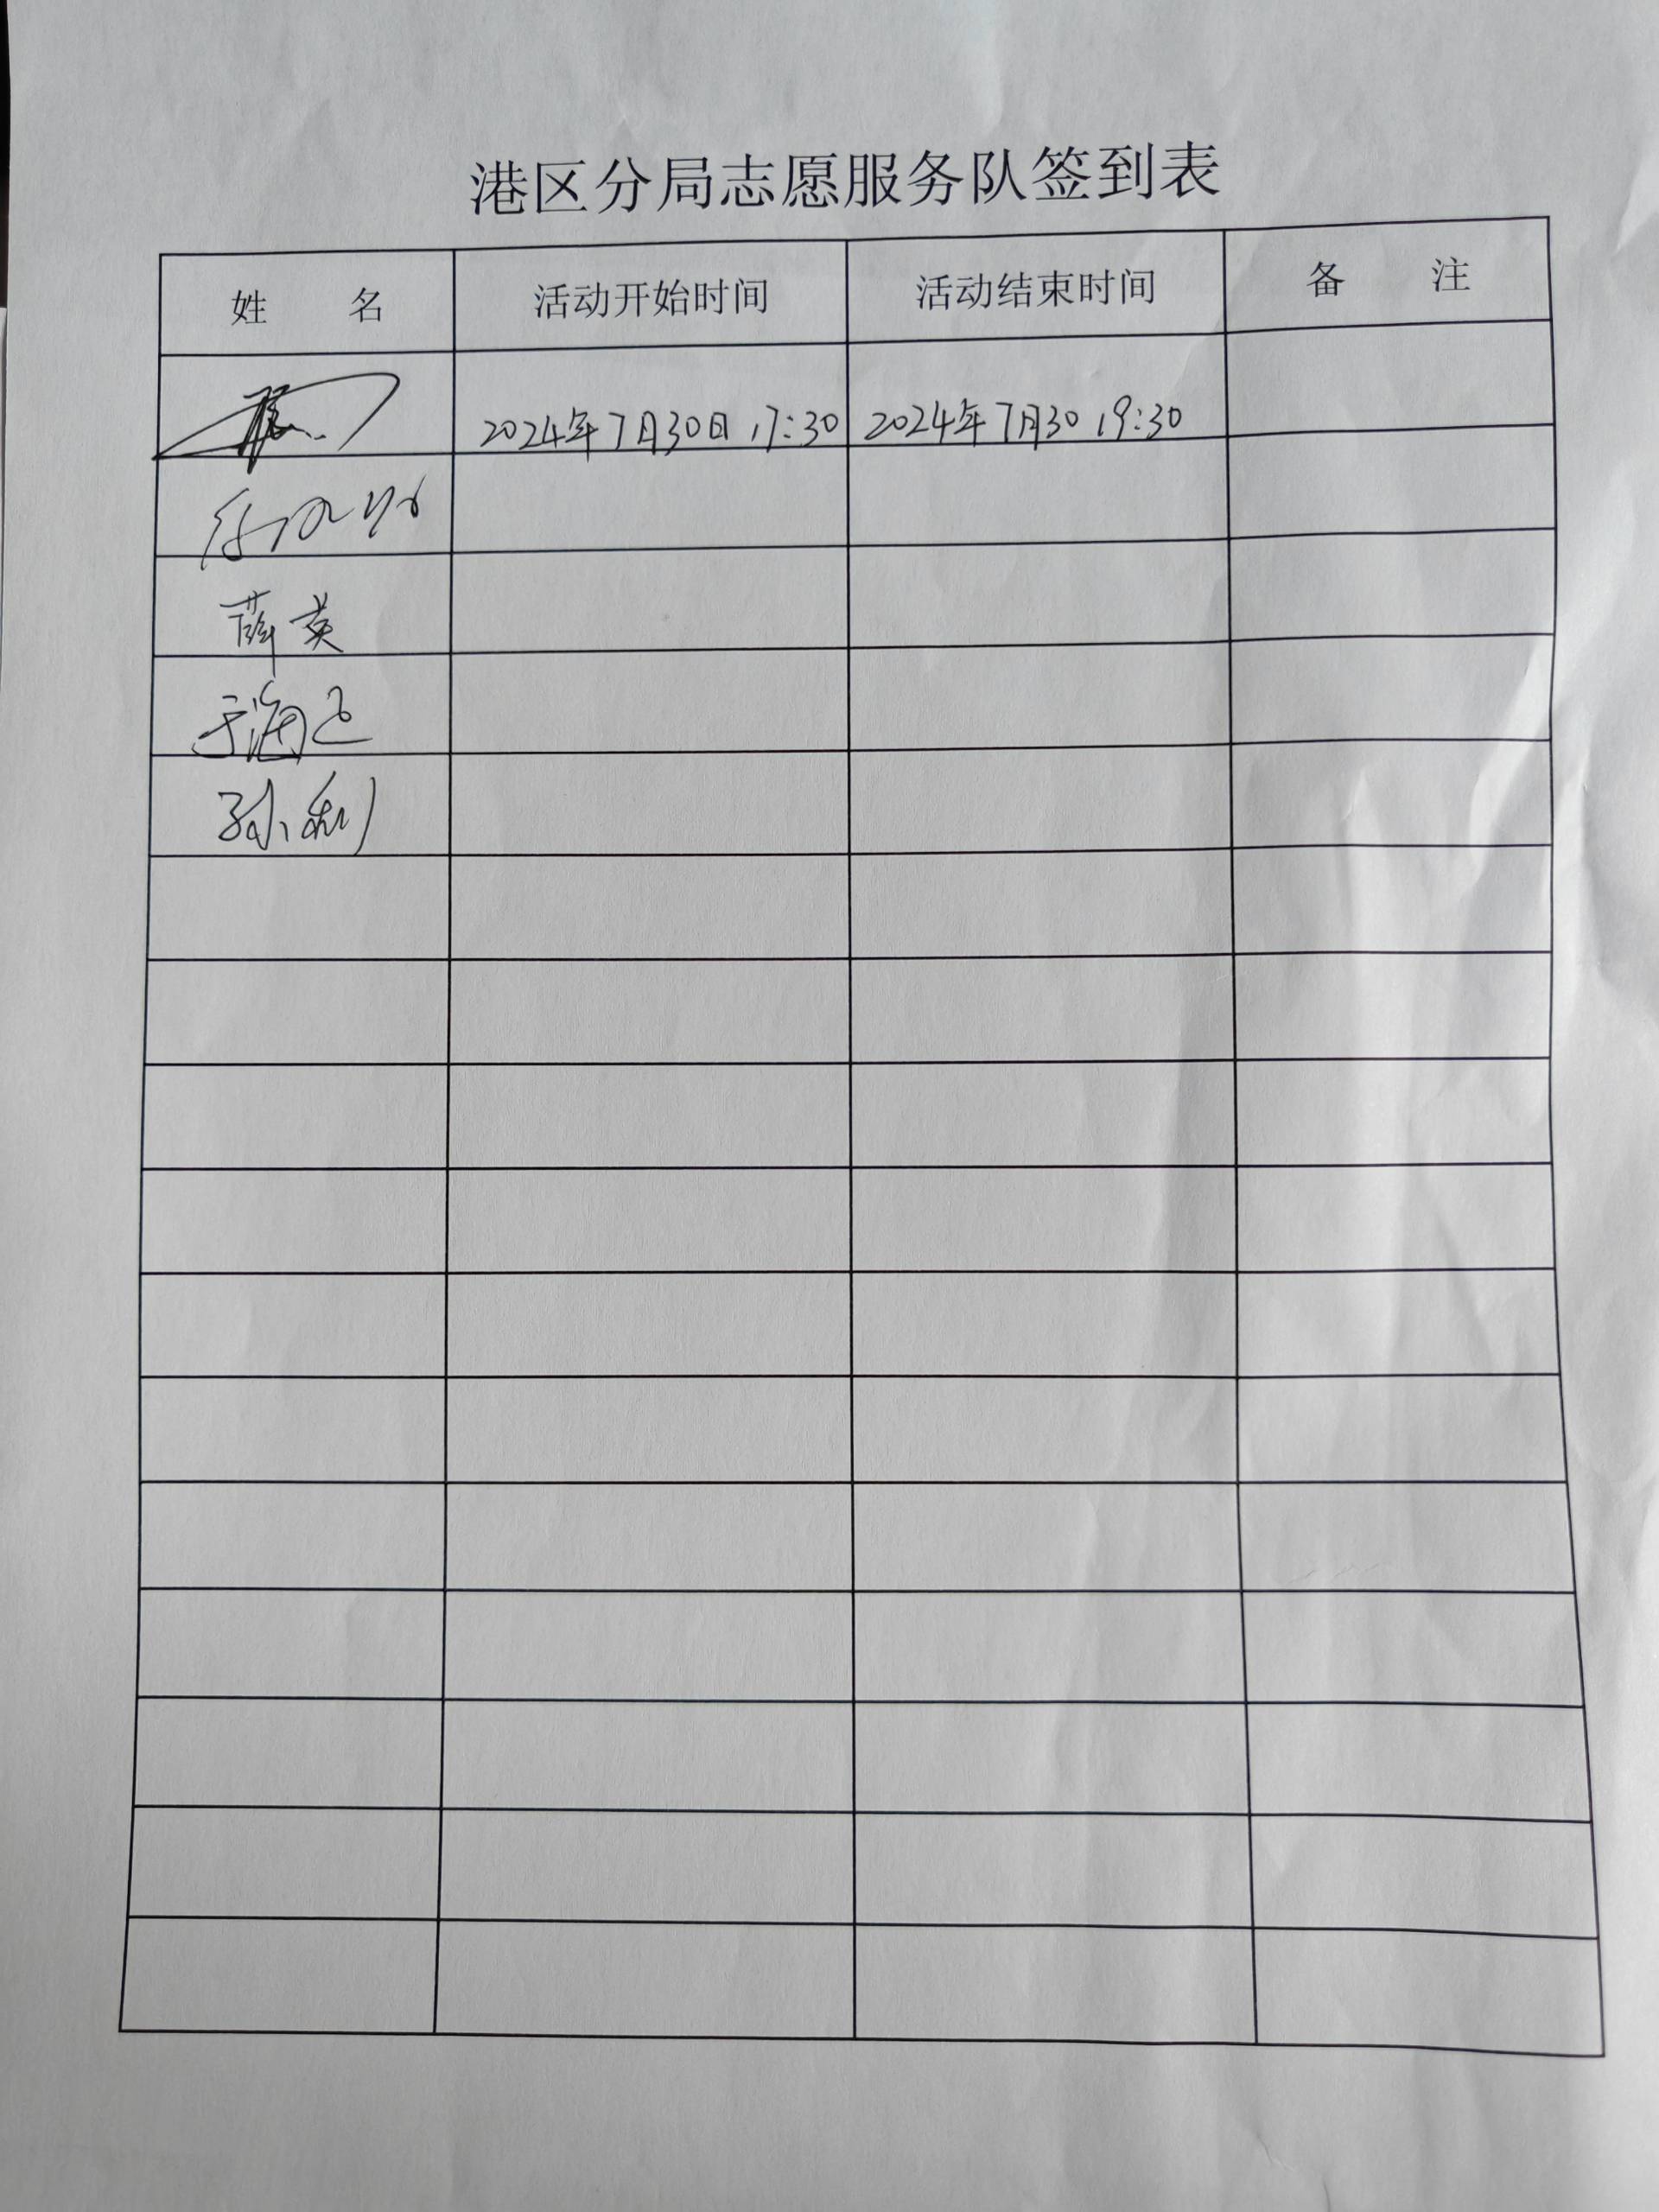 港区分局志愿服务队签到表
姓 名 活动开始时间 活动结束时间 备 注
2024年7月30日 17:30 2024年7月30 19:30
薛英
于海
孙利